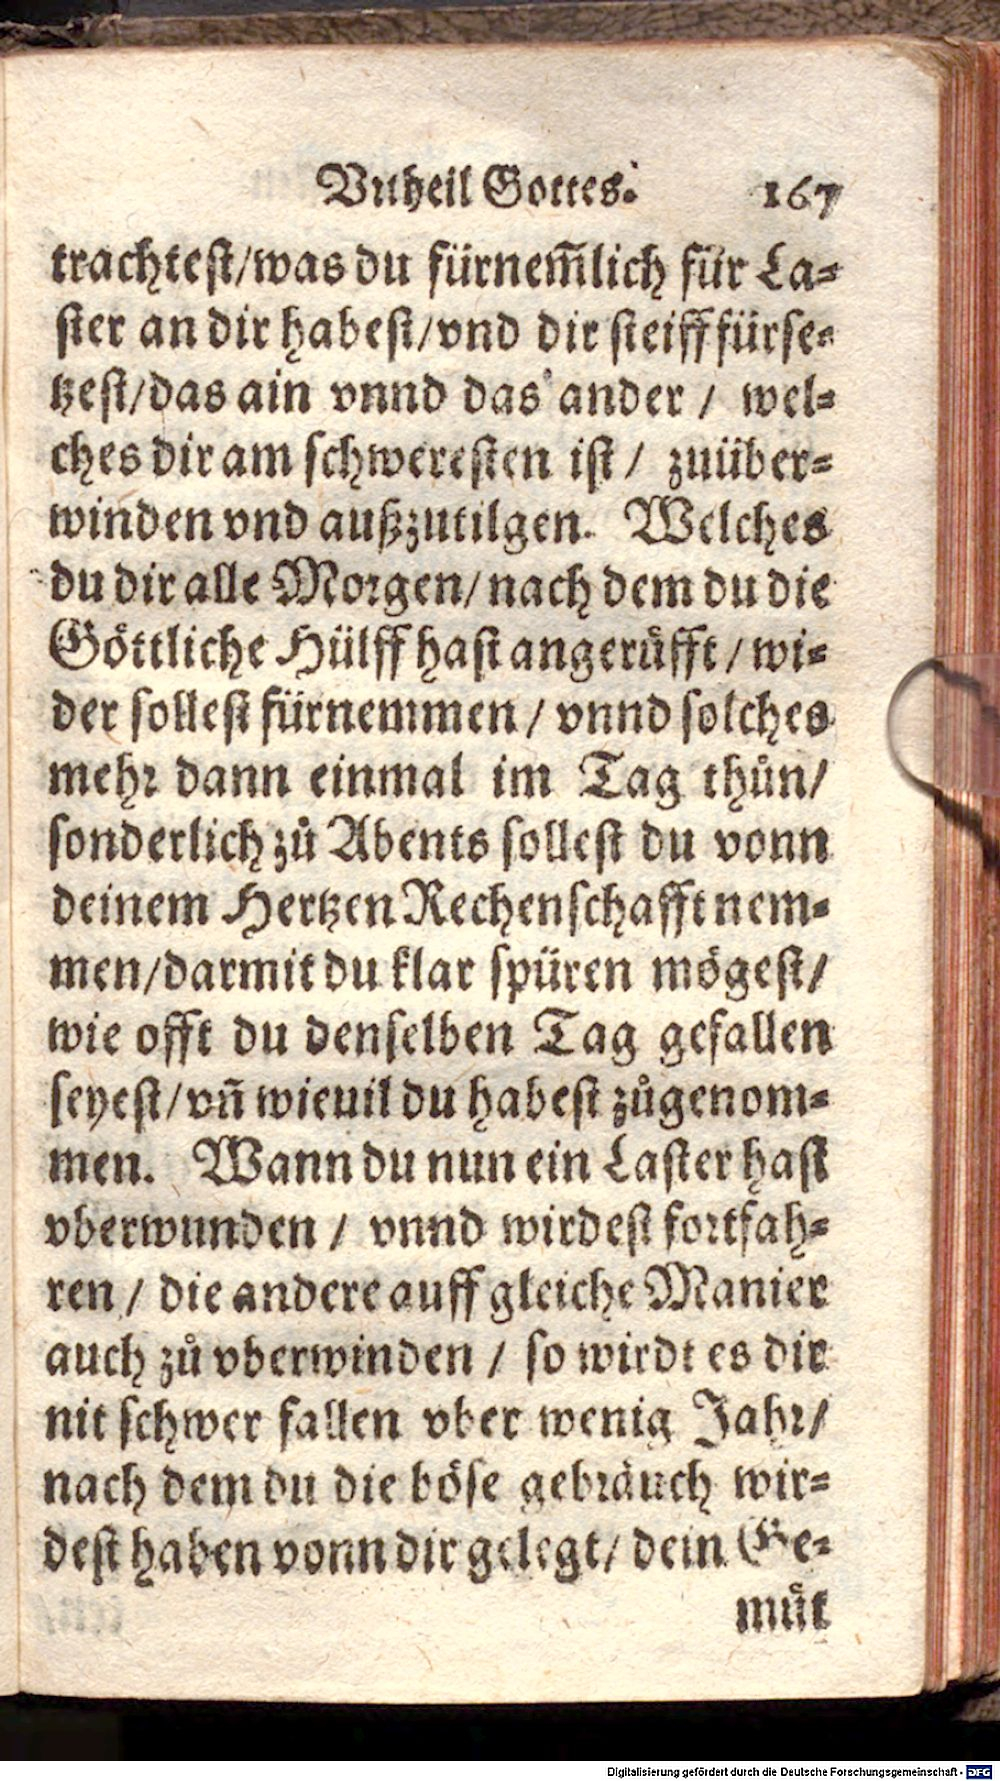 Vrtheil Gottes. 167
trachtest/was du fürnem̄lich für La-
ster an dir habest/vnd dir steiff fürse-
tzest/das ain vnnd das ander / wel-
ches dir am schweresten ist / zuüber-
winden vnd außzutilgen. Welches
du dir alle Morgen/nach dem du die
Göttliche Hülff hast angerůfft / wi-
der sollest fürnemmen / vnnd solches
mehr dann einmal im Tag thůn/
sonderlich zů Abents sollest du vonn
deinem Hertzen Rechenschafft nem-
men/darmit du klar spüren mögest/
wie offt du denselben Tag gefallen
seyest/vn̄ wieuil du habest zůgenom-
men. Wann du nun ein Laster hast
vberwunden / vnnd wirdest fortfah-
ren / die andere auff gleiche Manier
auch zů vberwinden / so wirdt es dir
nit schwer fallen vber wenig Jahr/
nach dem du die böse gebräuch wir-
dest haben vonn dir gelegt/ dein Ge-
můt
Digitalisierung gefördert durch die Deutsche Forschungsgemeinschaft - DFG